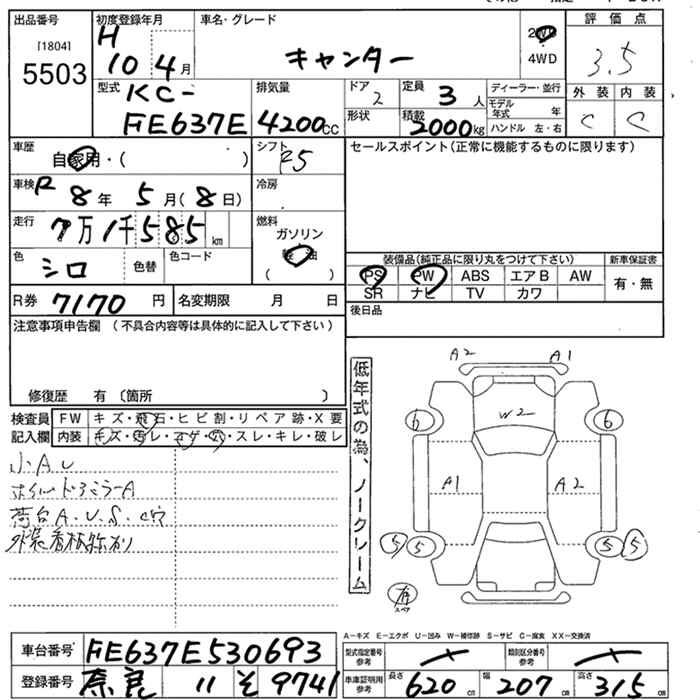 出品番号
[1804]
5503
初度登録年月
H
10 4月
車名・グレード
キャンター
2WD
4WD
評価点
3.5
外装 内装
C C
型式
KC-
FE637E
排気量
4200cc
ドア
2
形状
定員
3人
積載
2000kg
ディーラー・並行
モデル年式 年
ハンドル 左・右
車歴
自家用・( )
シフト
F5
セールスポイント(正常に機能するものに限ります)
車検
R 8年 5月(8日)
冷房
走行
7万1千585km
燃料
ガソリン
軽油
( )
色
シロ
色替
色コード
装備品(純正品に限り丸をつけて下さい)
PS PW ABS エアB AW
SR ナビ TV カワ
新車保証書
有・無
R券 7170円
名変期限 月 日
後日品
注意事項申告欄(不具合内容等は具体的に記入して下さい)
修復歴 有〔箇所 〕
検査員
記入欄
FW キズ・飛石・ヒビ割・リペア跡・X要
内装 キズ・汚レ・コゲ・穴・スレ・キレ・破レ
小AU
ホイルドアミラーA
荷台A.U.S.C穴
外装看板跡有り
低年式の為、ノークレーム
A2 A1
W2
6 6
A1 A2
5 5 5 5
有
スペア
A-キズ E-エクボ U-凹み W-補修跡 S-サビ C-腐食 XX-交換済
車台番号
FE637E530693
登録番号
奈良 11 そ 9741
型式指定番号
参考
類別区分番号
参考
車庫証明用
参考
長さ
620cm
幅
207cm
高さ
315cm